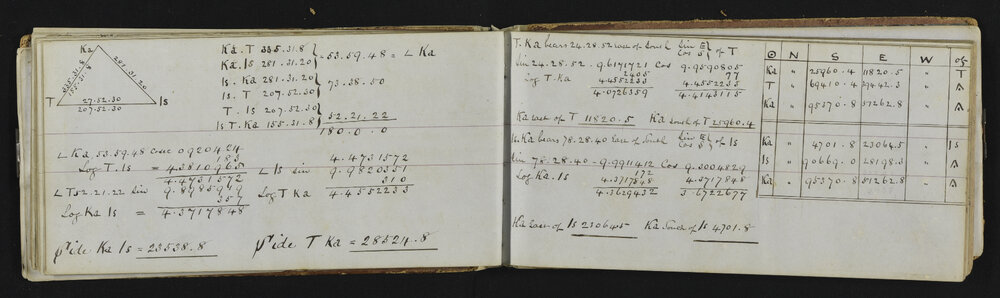 Ka
335.31.8
155.31.8
281.31.20
T
Is
27.52.30
207.52.30
Ka. T 335.31.8
Ka. Is 281.31.20
53.59.48 = L Ka
Is. Ka 281.31.20
Is. T 207.52.30
73.38.50
T. Is 207.52.30
Is T. Ka 155.31.8
52.21.22
180.0.0
L Ka 53.59.48 cosec 0920424
185
Log T. Is = 4.3810965
4.4731572
L T 52.21.22 Sin 9.8985949
357
Log Ka Is = 4.3717848
4.4731572
L Is Sin 9.9820351
310
Log T Ka 4.4552233
Side Ka Is = 23538.8
Side T Ka = 28524.8
T. Ka bears 24.28.52 East of South Sin E Cos S of T
Sin 24.28.52 . 9.6171721 Cos 9.9590805
2405 77
Log T. Ka 4.4552233 4.4552233
4.0726359 4.4143115
Ka East of T 11820.5 Ka South of T 25960.4
Is. Ka bears 78.28.40 East of South Sin E Cos S of Is
Sin 78.28.40 - 9.9911412 Cos 9.3004829
172
Log Ka. Is 4.3717848 4.3717848
4.3629432 3.6722677
Ka East of Is 23064.5 Ka South of Is 4701.8
⊙ N S E W of
Ka " 25960.4 11820.5 " T
T " 69410.4 39442.3 "
Ka " 95370.8 51262.8 "
Ka " 4701.8 23064.5 " Is
Is " 90669.0 28198.3 "
Ka " 95370.8 51262.8 "